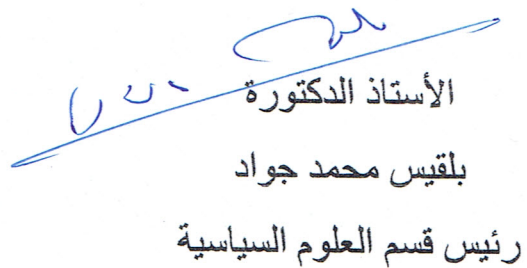 الأستاذ الدكتورة
بلقيس محمد جواد
رئيس قسم العلوم السياسية